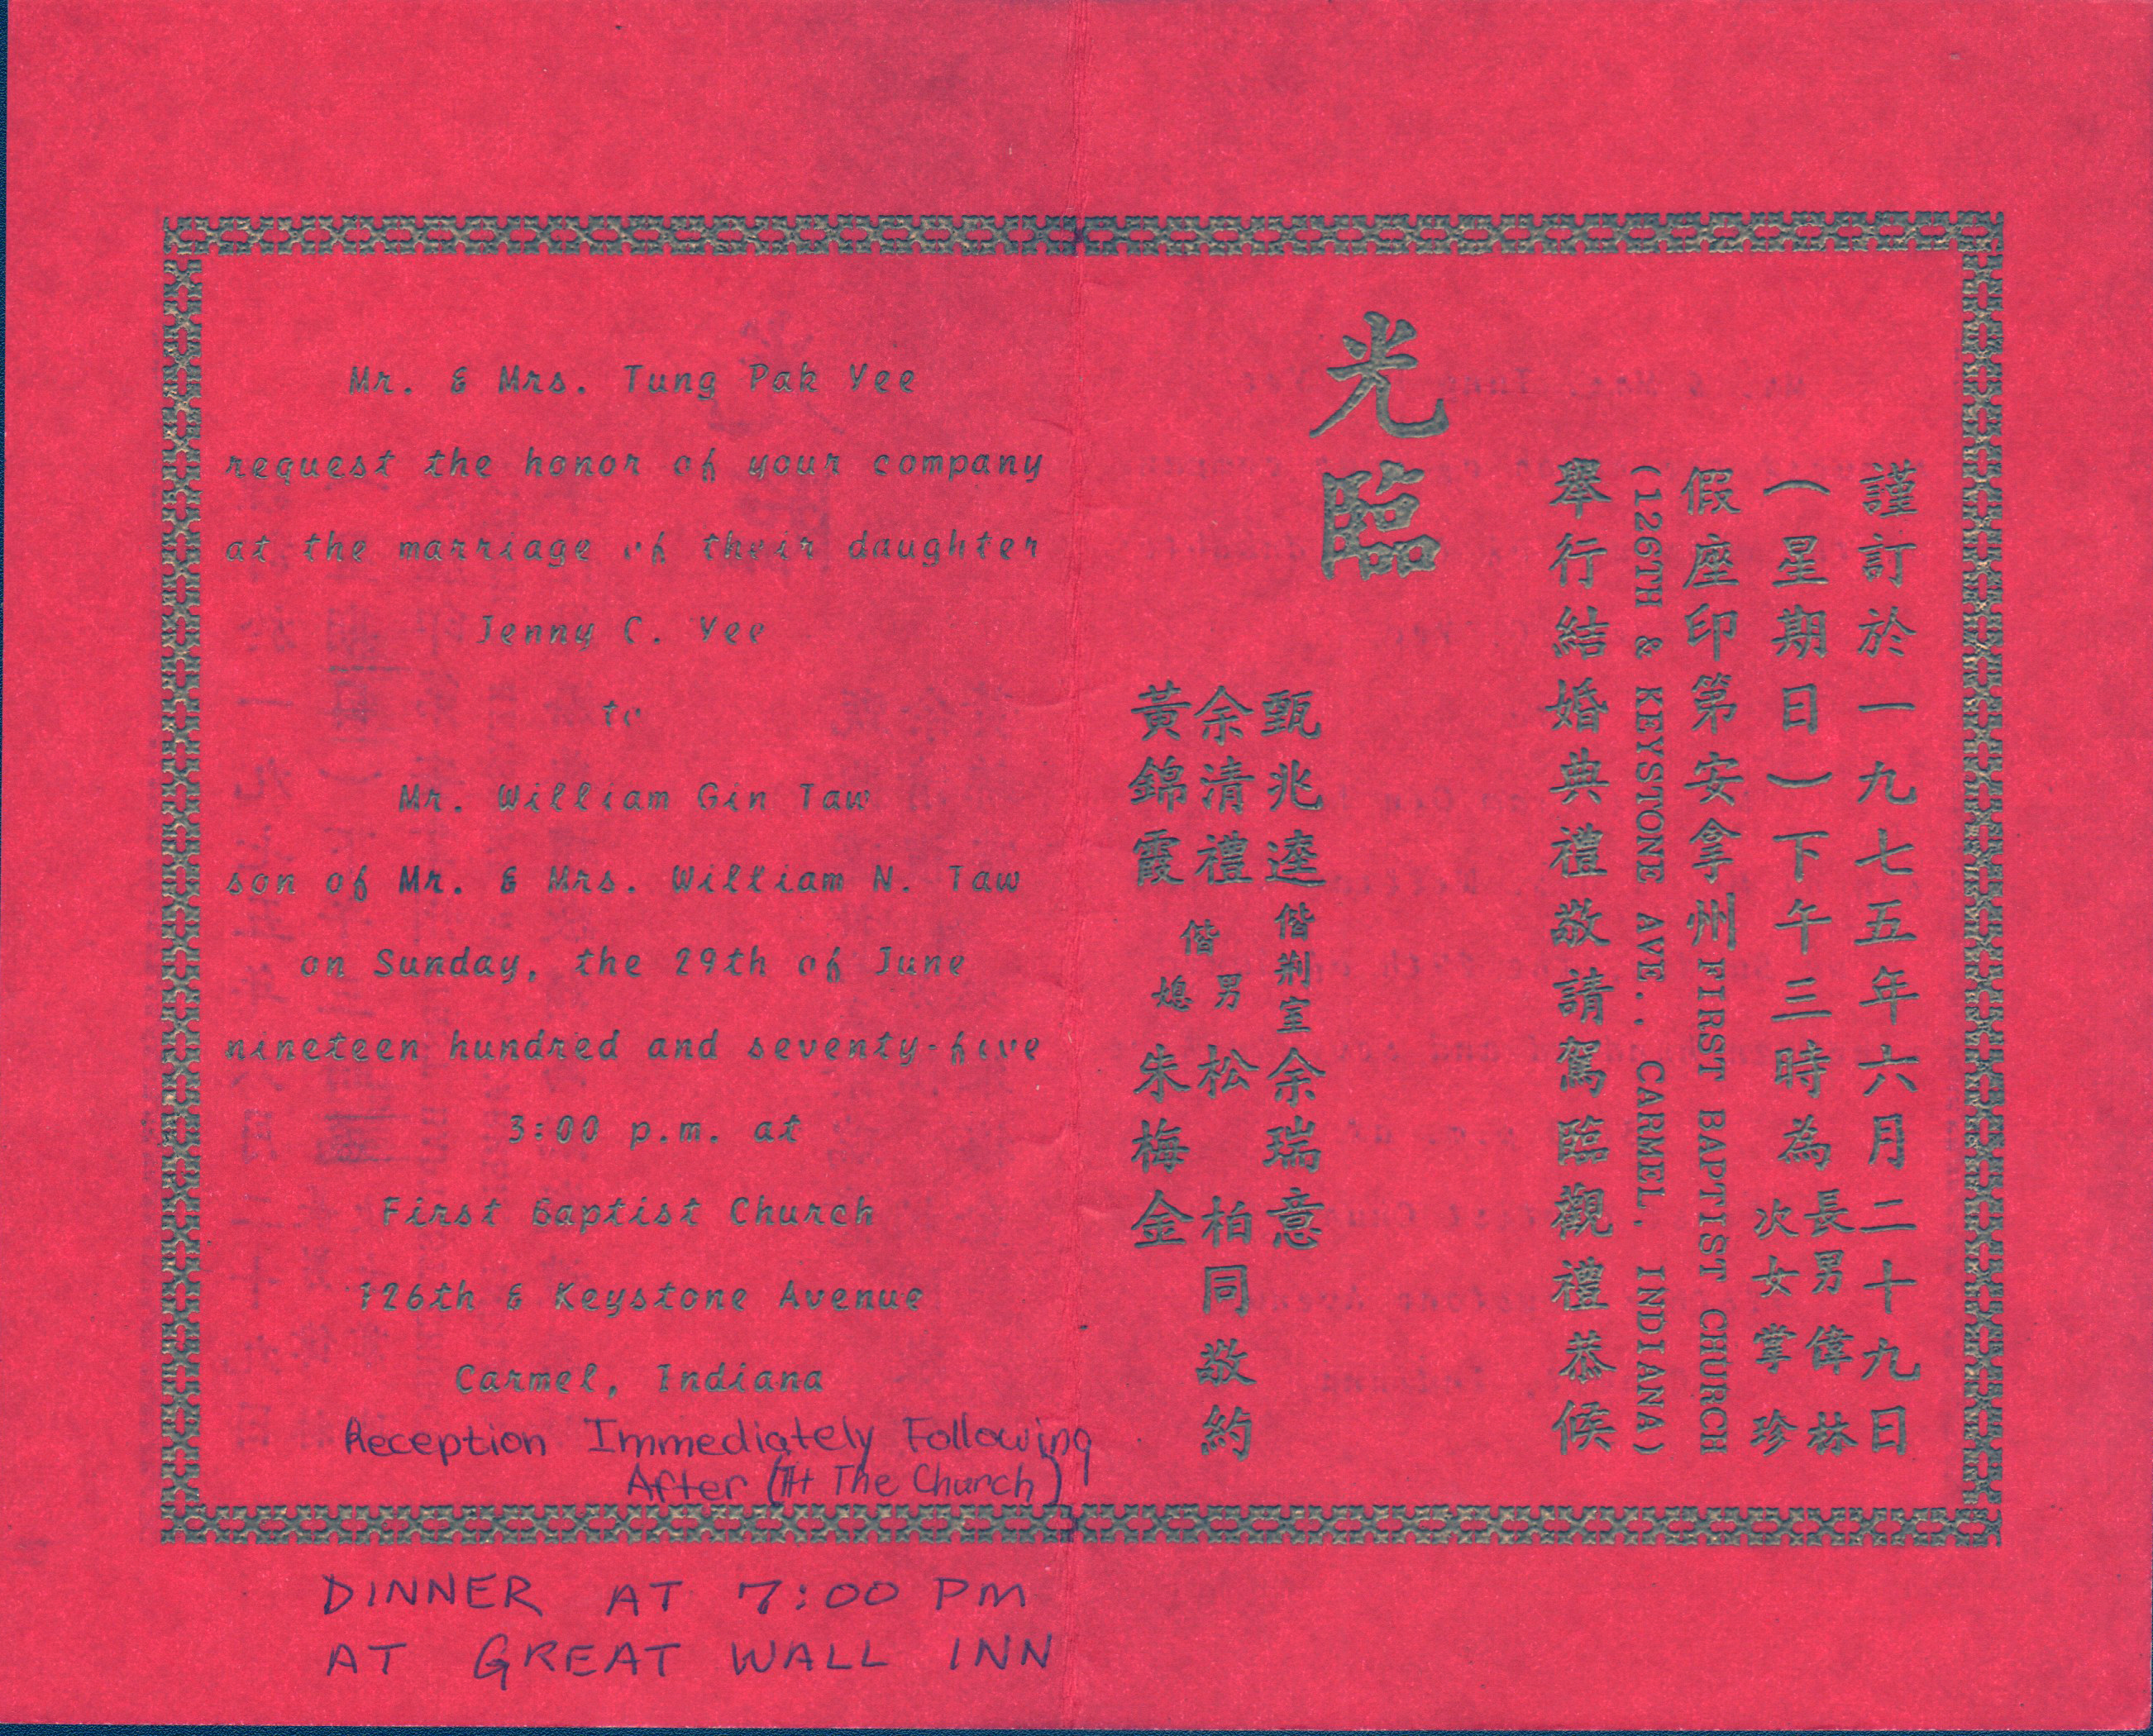 Mr. & Mrs. Tung Pak Yee
request the honor of your company
at the marriage of their daughter
Jenny C. Yee
to
Mr. William Gin Taw
son of Mr. & Mrs. William N. Taw
on Sunday, the 29th of June
nineteen hundred and seventy-five
3:00 p.m. at
First Baptist Church
126th & Keystone Avenue
Carmel, Indiana
Reception Immediately Following
After (At The Church)
DINNER AT 7:00 PM
AT GREAT WALL INN
謹訂於一九七五年六月二十九日
(星期日)下午三時為
長男偉林
次女掌珍
假座印第安拿州FIRST BAPTIST CHURCH
(126TH & KEYSTONE AVE., CARMEL, INDIANA)
舉行結婚典禮敬請駕臨觀禮恭候
光臨
甄兆逵偕荆室余瑞意
余清禮
黃錦霞
偕
男松柏
媳朱梅金
同敬約